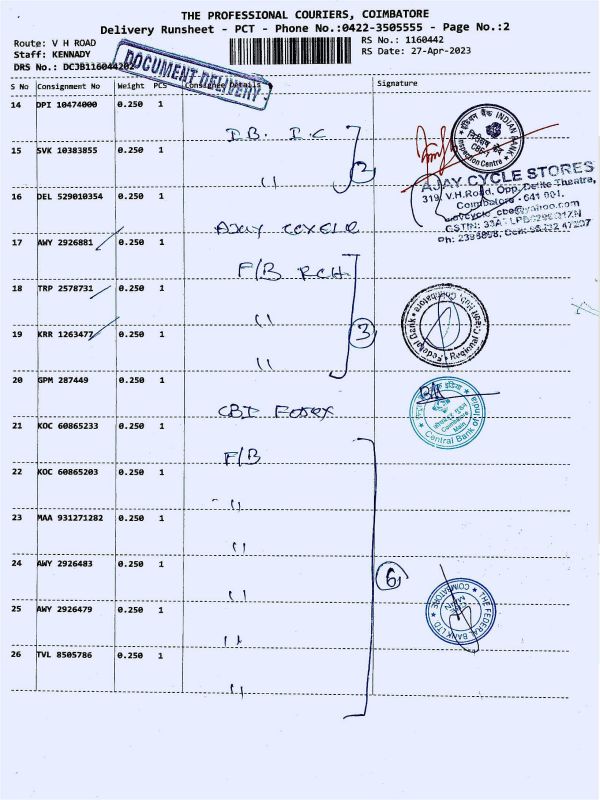 THE PROFESSIONAL COURIERS, COIMBATORE
Delivery Runsheet - PCT - Phone No.:0422-3505555 - Page No.:2
Route: V H ROAD
RS No.: 1160442
Staff: KENNADY
RS Date: 27-Apr-2023
DRS No.: DCJB116044202
DOCUMENT DELIVERY
S No Consignment No Weight PCS Consignee Details Signature
14 DPI 10474000 0.250 1
I.B. I.C
15 SVK 10383855 0.250 1
11
2
16 DEL 529010354 0.250 1
INDIAN BANK
Inspection Centre
AJAY CYCLE STORES
319, V.H.Road, Opp. Delite Theatre,
Coimbatore - 641 001.
17 AWY 2926881 0.250 1
F/B RCH
18 TRP 2578731 0.250 1
11
3
19 KRR 1263477 0.250 1
11
20 GPM 287449 0.250 1
CBI
Central Bank of India
21 KOC 60865233 0.250 1
F/B
22 KOC 60865203 0.250 1
11
23 MAA 931271282 0.250 1
11
24 AWY 2926483 0.250 1
11
6
THE FEDERAL BANK LTD
COIMBATORE
MAIN
25 AWY 2926479 0.250 1
11
26 TVL 8505786 0.250 1
11